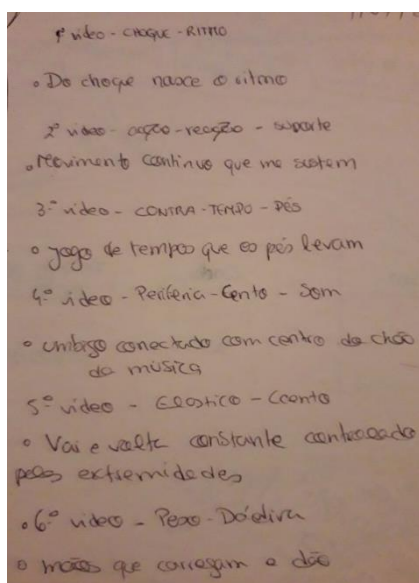 1º vídeo - CHOQUE - RITMO
Do choque nasce o ritmo
2º vídeo - acção - reacção - suporte
Movimento contínuo que me sustem
3.º vídeo - CONTRA-TEMPO - PÉS
jogo de tempos que os pés levam
4.º vídeo - Periferia - Cento - Som
umbigo conectado com centro do chão
da música
5.º vídeo - Elástico -
Vai e volta constante
pelas extremidades
6.º vídeo - Peso - Dádiva
mãos que carregam e dão